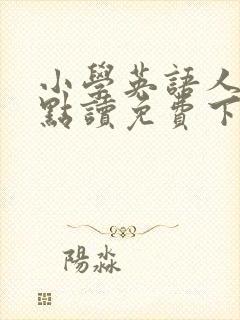 小學英語人
點讀免費下
陽淼